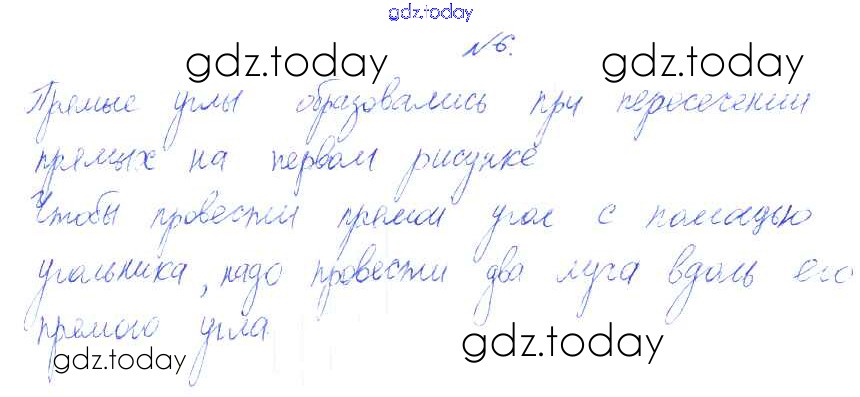 gdz.today
№6.
gdz.today gdz.today
Прямые углы образовались при пересечении
прямых на первом рисунке
Чтобы провести прямой угол с помощью
угольника, надо провести два луча вдоль его
прямого угла.
gdz.today gdz.today